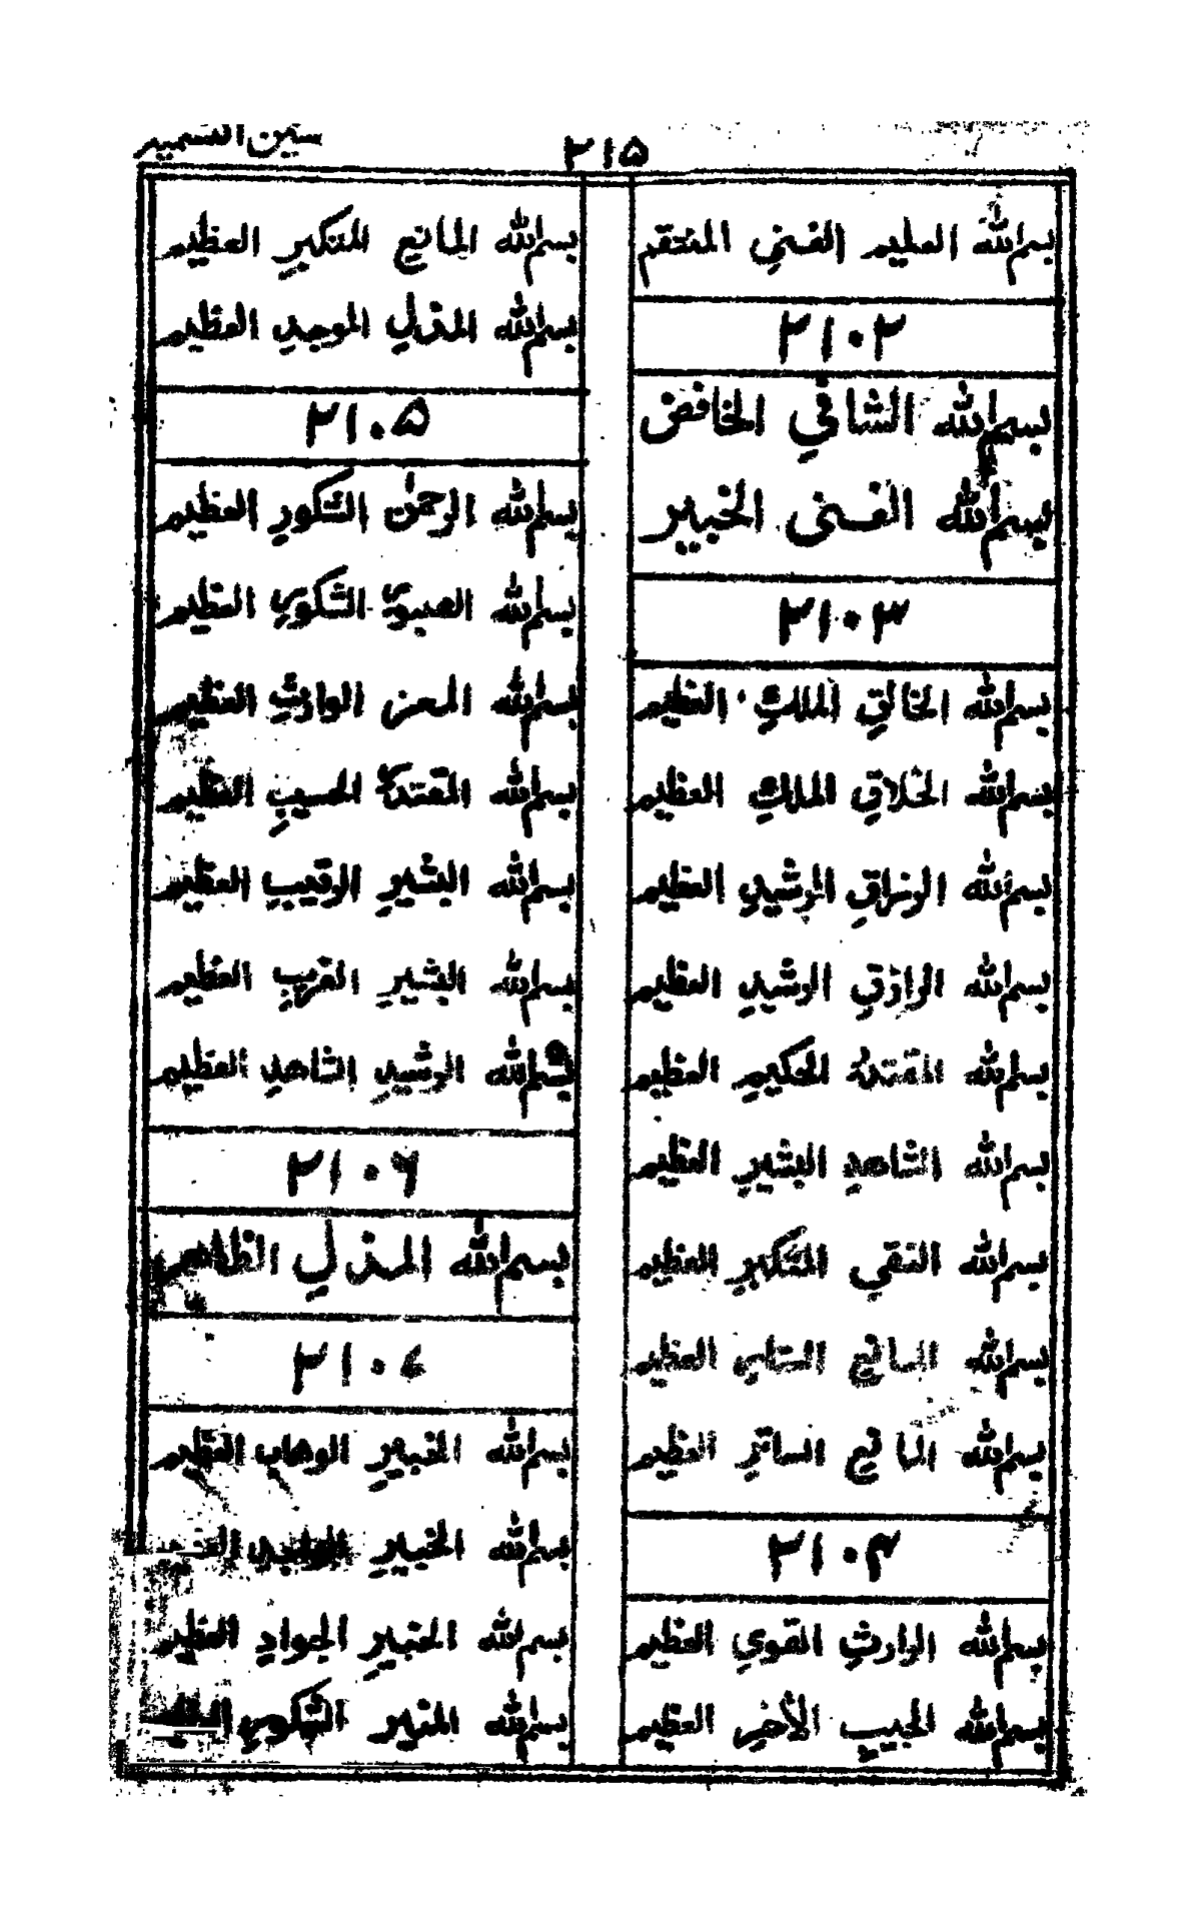 ۲۱۵
بسم الله العليم الغني المنتقم
۲۱۰۲
بسم الله الشافي الخافض
بسم الله الغنى الخبير
۲۱۰۳
بسم الله الخالق الملك العظيم
بسم الله الخلاق الملك العظيم
بسم الله الرزاق الرشيد العظيم
بسم الله الرازق الرشيد العظيم
بسم الله المقتدر الحكيم العظيم
بسم الله الشاهد البشير العظيم
بسم الله النقي المتكبر العظيم
بسم الله المانع الستار العظيم
بسم الله المانع الساتر العظيم
۲۱۰۴
بسم الله الوارث القوي العظيم
بسم الله الحبيب الأخر العظيم
بسم الله المانع المتكبر العظيم
بسم الله المنزل الموجد العظيم
۲۱۰۵
بسم الله الرحمن الشكور العظيم
بسم الله الشكور العظيم
بسم الله المعز الوارث العظيم
بسم الله المقتدر الحسيب العظيم
بسم الله البشير الرقيب العظيم
بسم الله البشير القريب العظيم
بسم الله الرشيد الشاهد العظيم
۲۱۰۶
بسم الله المنزل الظاهر
۲۱۰۷
بسم الله الخبير الوهاب العظيم
بسم الله الخبير
بسم الله الخبير الجواد العظيم
بسم الله المنير الشكور